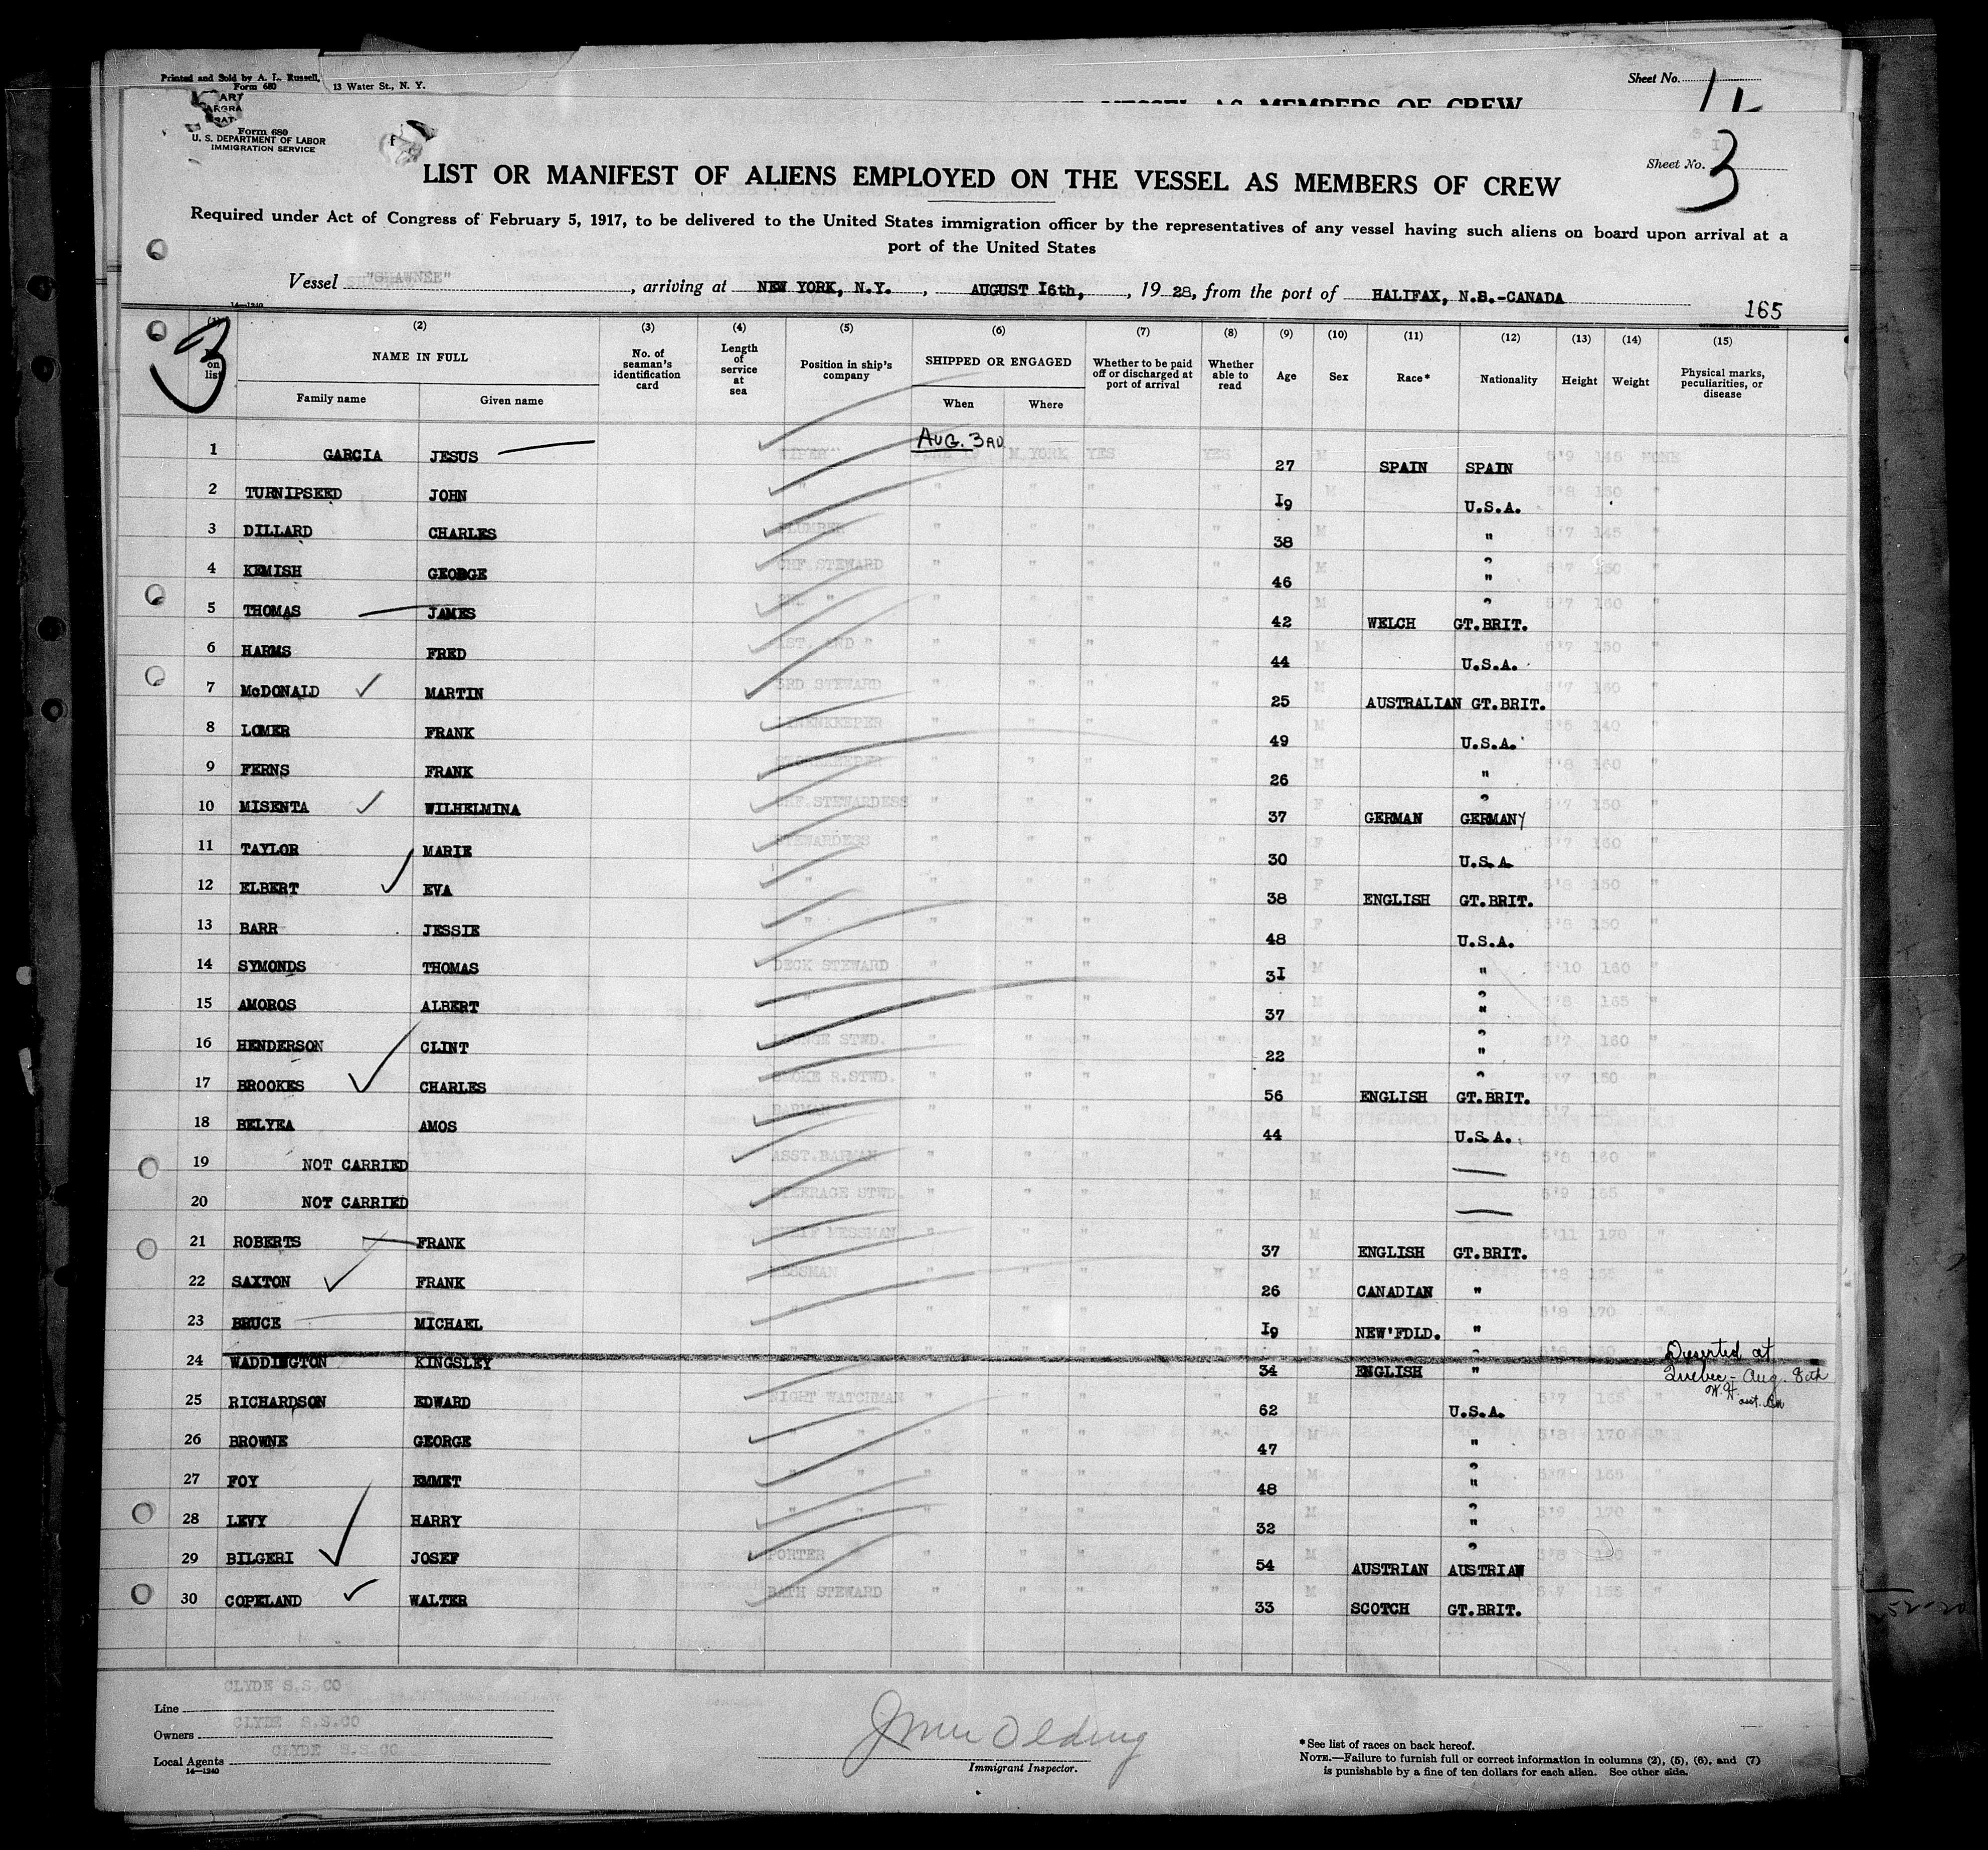 Printed and Sold by A. L. Russell, 13 Water St., N. Y.
Form 680
Sheet No. 1
VESSEL AS MEMBERS OF CREW
Form 680
U. S. DEPARTMENT OF LABOR
IMMIGRATION SERVICE
Sheet No. 3
LIST OR MANIFEST OF ALIENS EMPLOYED ON THE VESSEL AS MEMBERS OF CREW
Required under Act of Congress of February 5, 1917, to be delivered to the United States immigration officer by the representatives of any vessel having such aliens on board upon arrival at a
port of the United States
Vessel "SHAWNEE", arriving at NEW YORK, N.Y., AUGUST I6th, , 19 28, from the port of HALIFAX, N.S.-CANADA
14-1240
165
3
(1) (2) (3) (4) (5) (6) (7) (8) (9) (10) (11) (12) (13) (14) (15)
on list NAME IN FULL Family name Given name No. of seaman's identification card Length of service at sea Position in ship's company SHIPPED OR ENGAGED When Where Whether to be paid off or discharged at port of arrival Whether able to read Age Sex Race* Nationality Height Weight Physical marks, peculiarities, or disease
AUG. 3RD
1 GARCIA JESUS WIPER N.YORK YES YES 27 M SPAIN SPAIN 5'9 145 NONE
2 TURNIPSEED JOHN " " " " " I9 M U.S.A. 5'8 160 "
3 DILLARD CHARLES PLUMBER " " " " 38 M " 5'7 145 "
4 KEMISH GEORGE CHF.STEWARD " " " " 46 M " 5'7 150 "
5 THOMAS JAMES 2ND " " " " " 42 M WELCH GT.BRIT. 5'7 160 "
6 HARMS FRED AST. 2ND " " " " " 44 M U.S.A. 5'7 150 "
7 McDONALD MARTIN 3RD STEWARD " " " " 25 M AUSTRALIAN GT.BRIT. 5'7 160 "
8 LOMER FRANK LINENKEEPER " " " " 49 M U.S.A. 5'6 140 "
9 FERNS FRANK " " " " 26 M " 5'8 160 "
10 MISENTA WILHELMINA CHF.STEWARDESS " " " " 37 F GERMAN GERMANY 5'7 150 "
11 TAYLOR MARIE STEWARDESS " " " " 30 F U.S.A 5'7 160 "
12 ELBERT EVA " " " " " 38 F ENGLISH GT.BRIT. 5'8 150 "
13 BARR JESSIE " " " " " 48 F U.S.A. 5'8 150 "
14 SYMONDS THOMAS DECK STEWARD " " " " 3I M " 5'10 160 "
15 AMOROS ALBERT " " " " " 37 M " 5'8 165 "
16 HENDERSON CLINT LOUNGE STWD. " " " " 22 M " 5'7 160 "
17 BROOKES CHARLES SMOKE R.STWD. " " " " 56 M ENGLISH GT.BRIT. 5'7 150 "
18 BELYEA AMOS BARMAN " " " " 44 M U.S.A. 5'7 "
19 NOT CARRIED ASST.BARMAN " " " " M 5'8 160 "
20 NOT CARRIED STEERAGE STWD. " " " " M 5'9 165 "
21 ROBERTS FRANK CHIEF MESSMAN " " " " 37 M ENGLISH GT.BRIT. 5'11 190 "
22 SAXTON FRANK MESSMAN " " " " 26 M CANADIAN " 5'8 165 "
23 BRUCE MICHAEL " " " " " I9 M NEW'FDLD. " 5'8 170 "
24 WADDINGTON KINGSLEY 34 ENGLISH " Deserted at
Quebec - Aug. 8th
W.H.
25 RICHARDSON EDWARD NIGHT WATCHMAN " " " " 62 M U.S.A. 5'7 165 "
26 BROWNE GEORGE " " " " " " 47 M " 5'8 170 "
27 FOY EMMET " " " " " " 48 M " 5'7 165 "
28 LEVY HARRY " " " " " " 32 M " 5'9 170 "
29 BILGERI JOSEF PORTER " " " " 54 M AUSTRIAN AUSTRIAN 5'8 "
30 COPELAND WALTER BATH STEWARD " " " " 33 M SCOTCH GT.BRIT. 5'7 155 "
Line CLYDE S.S.CO
Owners CLYDE S.S.CO
Local Agents CLYDE S.S.CO
14-1240
Olding
Immigrant Inspector.
* See list of races on back hereof.
NOTE.—Failure to furnish full or correct information in columns (2), (5), (6), and (7)
is punishable by a fine of ten dollars for each alien. See other side.